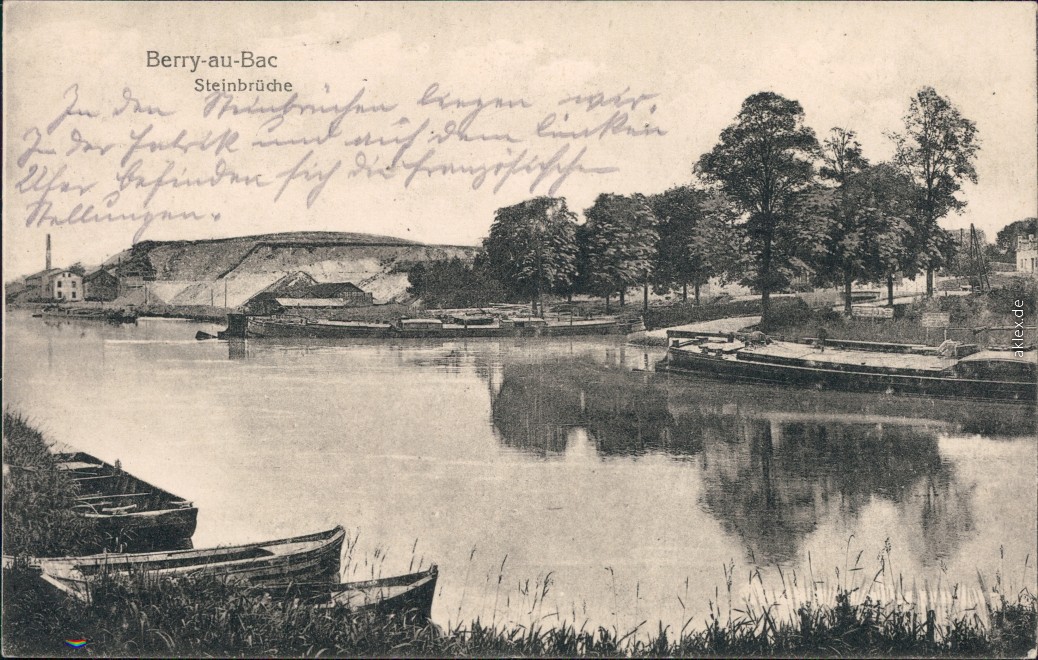 Berry-au-Bac
Steinbrüche
In den Steinbrüchen liegen wir.
In der Fabrik und auf dem linken
Ufer befinden sich die französische
Stellungen.
aklex.de